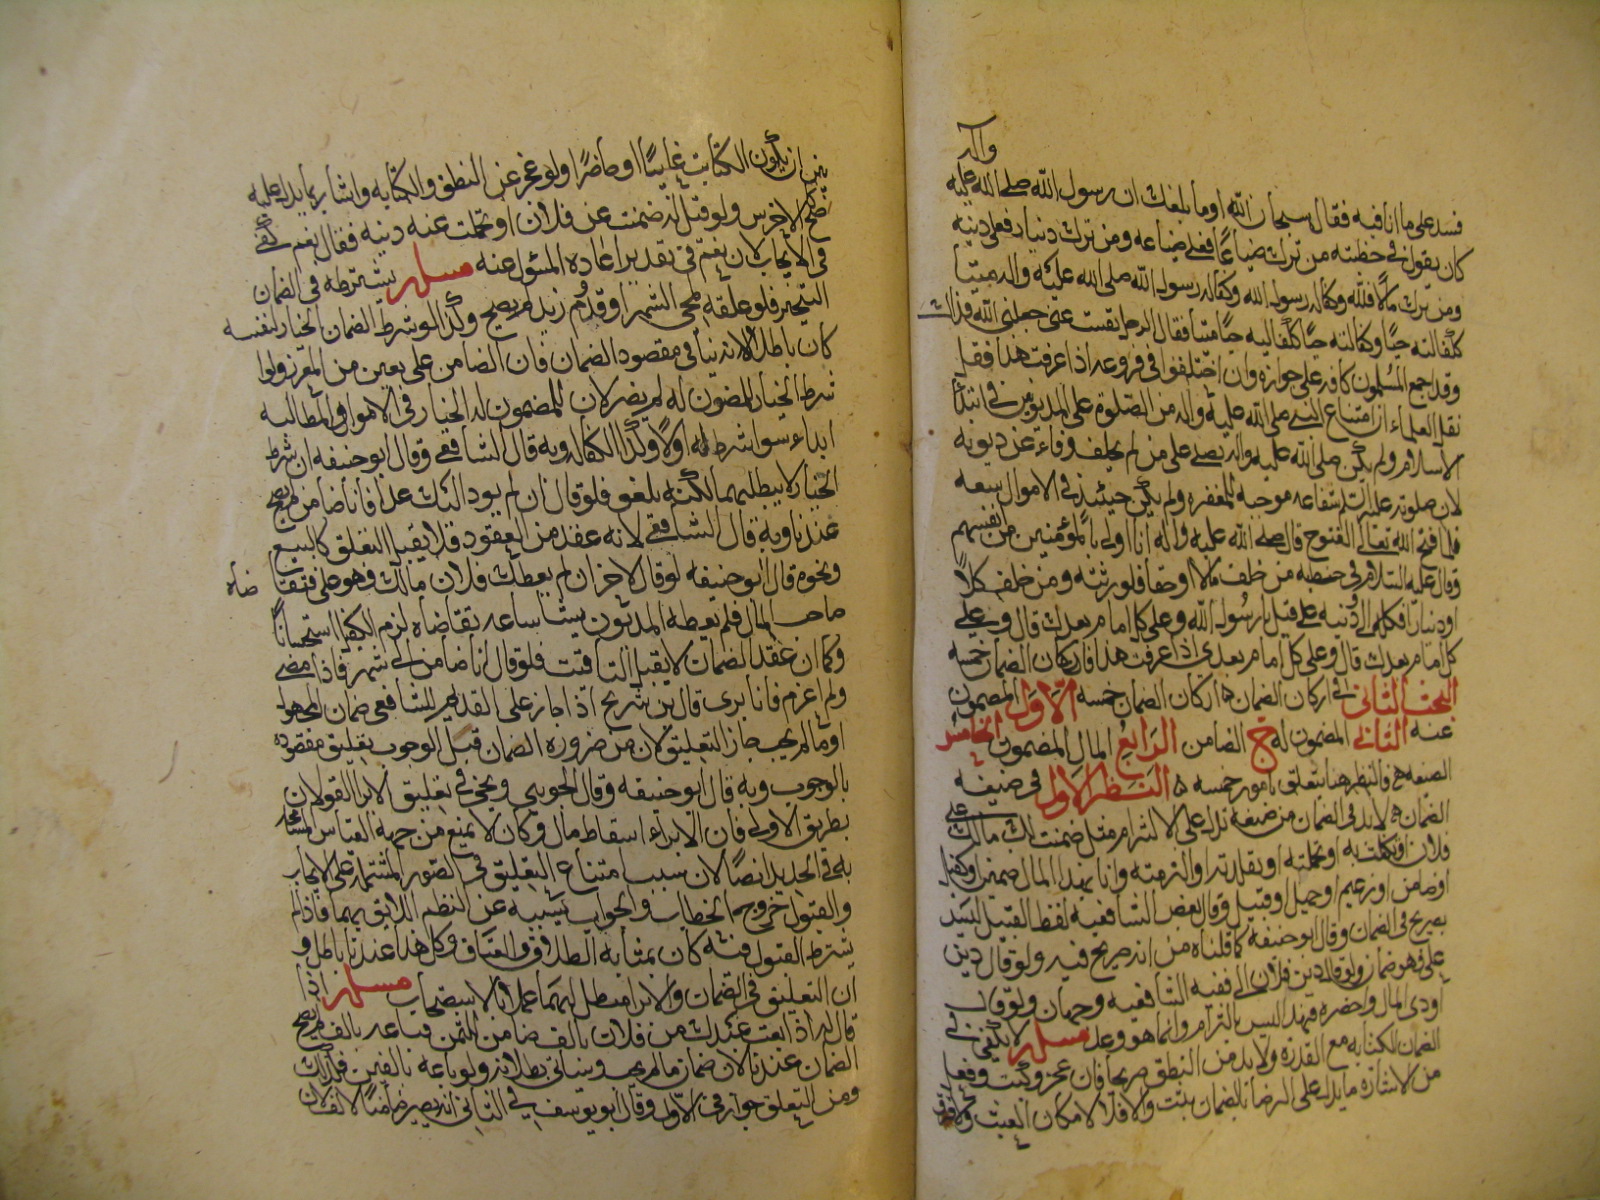 واله
فسد على ما انا فيه فقال سبحان الله اوما بلغك ان رسول الله صلى الله عليه
كان يقول في خطبته من ترك ضياعا فعلي ضياعه ومن ترك دينا فعلي دينه
ومن ترك مالا فلله وكفاله رسول الله وكفاله رسول الله صلى الله عليه واله ميتا
ككفالته حيا وكفالته حيا ككفالته ميتا فقال الرجل نفست عني جعلني الله فداك
وقد اجمع المسلمون كافه على جوازه وان اختلفوا في فروعه اذا عرفت هذا فقد
نقل العلماء ان امتناع النبي صلى الله عليه واله من الصلوة على المديون في ابتدا
الاسلام ولم يكن صلى الله عليه واله يصلي على من لم يخلف وفاءً عن ديونه
لان صلوته عليه شفاعه موجبه للمغفره ولم يكن حينئذ في الاموال سعه
فلما فتح الله تعالى الفتوح قال صلى الله عليه واله انا اولى بالمؤمنين من انفسهم
وقال عليه السلام في خطبه من خلف مالا او حقا فلورثته ومن خلف كلا
او دينا فكله الي ودينه علي قيل يا رسول الله وعلى كل امام بعدك قال وعلى
كل امام بعدي اذا عرفت هذا فاركان الضمان خمسه
البحث الثاني في اركان الضمان اركان الضمان خمسه الاول المضمون
عنه الثاني المضمون له ج الضامن الرابع المال المضمون الخامس
الصيغه فالنظر هنا يتعلق بامور خمسه النظر الاول في صيغه
الضمان لا بد في الضمان من صيغه تدل على الالتزام مثل ضمنت لك مالك على
فلان او تكفلت به او تحملته او تقلدته او التزمته وانا بهذا المال ضمين او كفيل
او ضامن او زعيم او حميل او قبيل وقال بعض الشافعيه لفظ القبيل ليس
بصريح في الضمان وقال ابو حنيفه كما قلناه من انه صريح فيه ولو قال دين
علي فهو ضامن ولو قال دين فلان الي ففيه للشافعيه وجهان ولو قال
اودي المال واحضره فهذا ليس بالتزام وانما هو وعد مسئله لا يكفي في
الضمان الكتابه مع القدره ولا بد من النطق صريحا فان عجز وكتب وفعل
من الاشاره ما يدل على الرضا بالضمان يثبت والا فلا لامكان العبث ولا فرق
بين ان يكون الكتابت غايبا او حاضرا ولو عجز عن النطق والكتابه واشار بما يدل عليه
صح كالاخرس ولو قيل له ضمنت عن فلان او تحملت عنه دينه فقال نعم كفى
في الايجاب لان نعم في تقدير اعاده المسؤل عنه مسئله يشترط في الضمان
التنجيز فلو علقه بمجي الشهر او قدوم زيد لم يصح وكذا لو شرط الضمان الخيار لنفسه
كان باطلا لانه ينافي مقصود الضمان فان الضامن على يقين من الغرر ولو
شرط الخيار للمضمون له لم يضر لان للمضمون له الخيار في الابراء والمطالبه
ابدا سواء شرط له اولا وكذا الكفاله وبه قال الشافعي وقال ابو حنيفه ان شرط
الخيار لا يبطلهما لكنه يلغو فلو قال ان لم يود اليك غدا فانا ضامن لم يصح
عندنا وبه قال الشافعي لانه عقد من العقود فلا يقبل التعليق كالبيع
ونحوه قال ابو حنيفه لو قال لاخر ان لم يعطك فلان مالك فهو علي فتقاضاه
صاحب المال فلم يعطه المديون شيئا ساعه تقاضاه لزم الكفيل استحسانا
وكما ان عقد الضمان لا يقبل التاقيت فلو قال انا ضامن الى شهر فاذا مضى
ولم اغرم فانا برئ قال ابن شريح اذا جاز على القديم للشافعي ضمان المجهول
او ما لم يجب جاز التعليق لان من ضروره الضمان قبل الوجوب تعليق مقصوده
بالوجوب وبه قال ابو حنيفه وقال الجويني ويجي في تعليق الابرا القولان
بطريق الاولى فان الابراء اسقاط مال وكان لا يمنع من جهه القياس المسامحه
به في الجديد ايضا لان سبب امتناع التعليق في الصور المشتمله على الايجاب
والقبول خروج الخطاب والجواب بسببه عن النظم اللايق بهما فاذا لم
يشرط القبول فيه كان بمثابه الطلاق والعتاق وكل هذا عندنا باطل و
ان التعليق في الضمان والابرا مبطل لهما عملا بالاستصحاب مسئله اذا
قال له اذا بعت عبدك من فلان بالف فانا ضامن للثمن فباعه بالف لم يصح
الضمان عندنا لانه ضمان ما لم يجب وسياتي بطلانه ولو باعه بالفين فكذلك
ومن التعلق جوازه في الاول وقال ابو يوسف في الثاني انه يصير ضامنا لالف لان